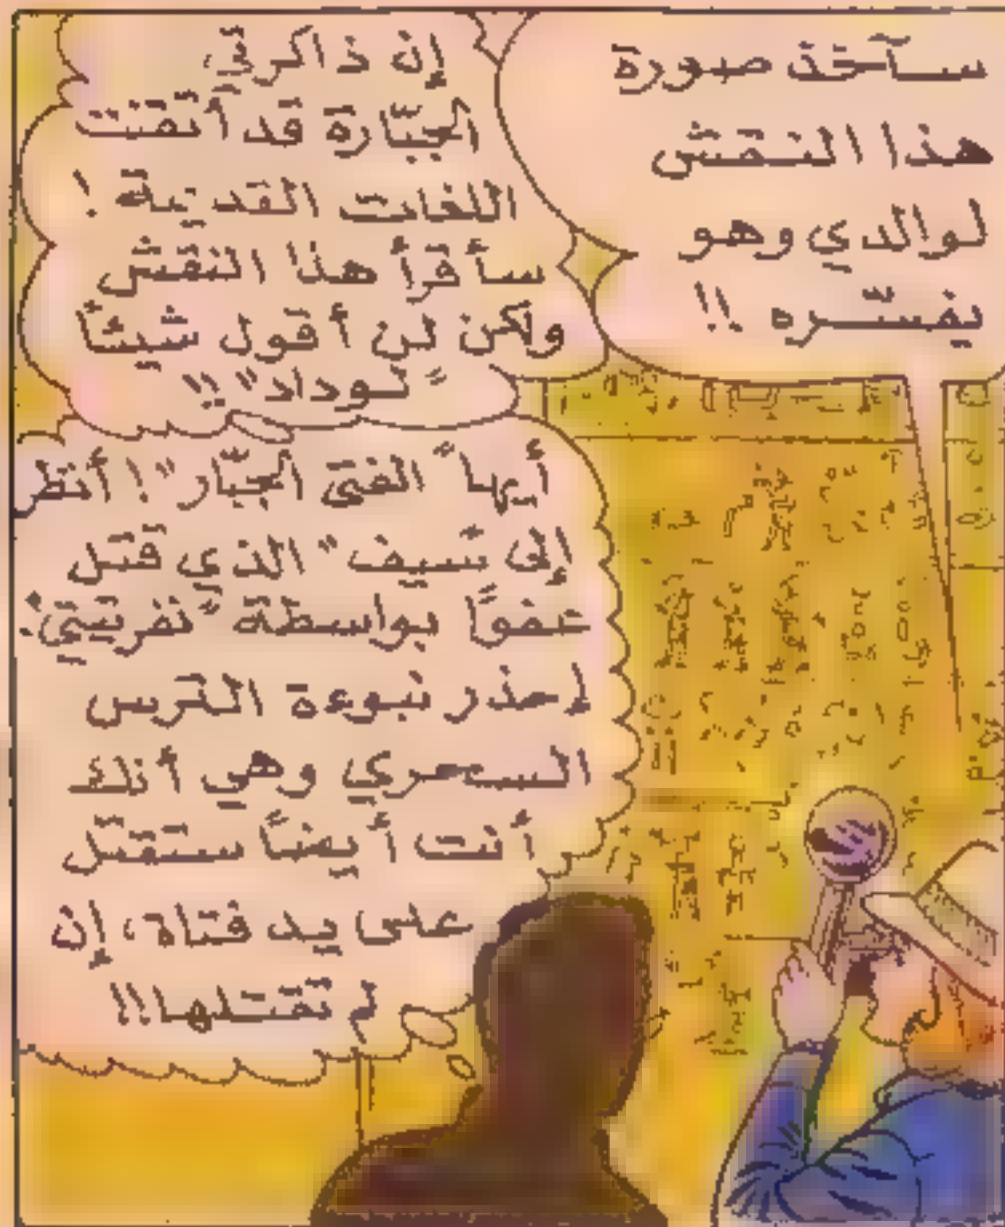 سآخذ صورة
هذا النقش
لوالدي وهو
يفسّره !!
إن ذاكرتي
الجبّارة قد أتقنت
اللغات القديمة !
سأقرأ هذا النقش
ولكن لن أقول شيئاً
"لوداد" !!
أيها "الفتى الجبّار" ! أنظر
إلى "سيف" الذي قتل
عفواً بواسطة "نفرتيتي".
إحذر نبوءة الترس
السحري وهي أنك
أنت أيضاً ستقتل
على يد فتاة، إن
لم تقتلها !!!